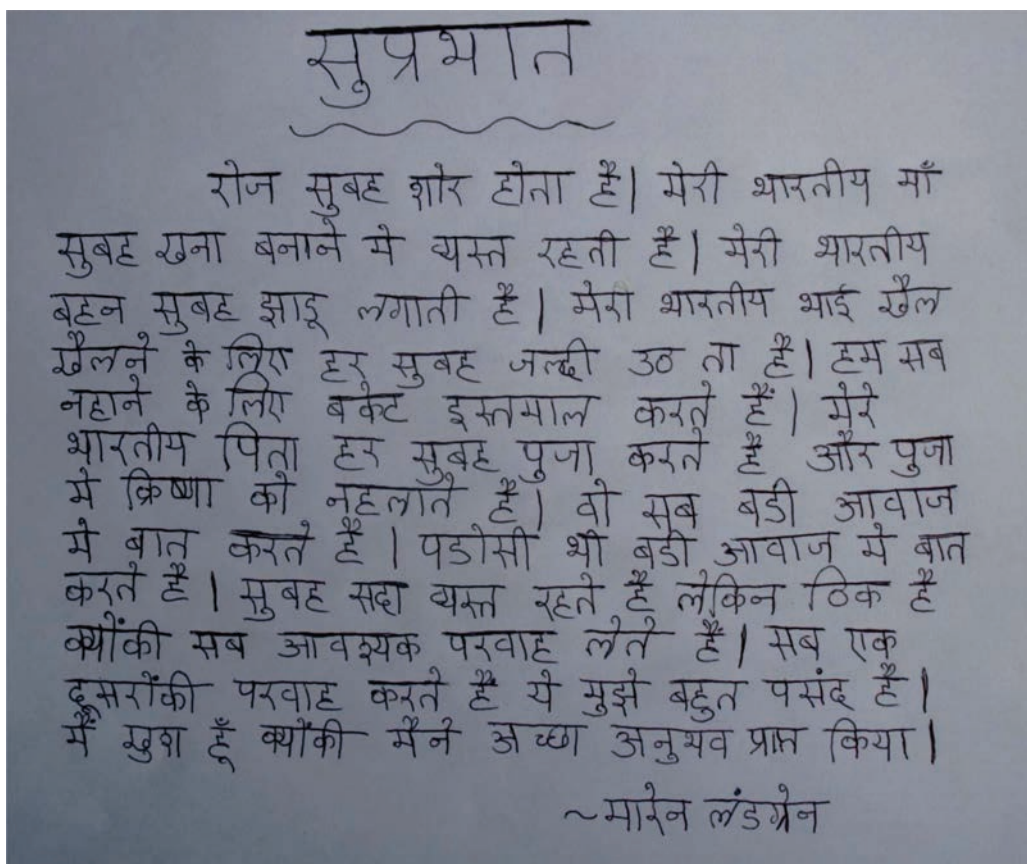 सुप्रभात
रोज सुबह शोर होता है। मेरी भारतीय माँ
सुबह खना बनाने मे व्यस्त रहती है। मेरी भारतीय
बहन सुबह झाडू लगाती है। मेरा भारतीय भाई खैल
खैलने के लिए हर सुबह जल्दी उठ ता है। हम सब
नहाने के लिए बकेट इस्तमाल करते हैं। मेरे
भारतीय पिता हर सुबह पुजा करते है और पुजा
मे क्रिष्णा को नहलाते है। वो सब बडी आवाज
मे बात करते है। पडोसी भी बडी आवाज मे बात
करते है। सुबह सदा व्यस्त रहते है लेकिन ठिक है
क्योंकी सब आवश्यक परवाह लेते है। सब एक
दुसरोंकी परवाह करते है ये मुझे बहुत पसंद है।
मैं खुश हूँ क्योंकी मैने अच्छा अनुभव प्राप्त किया।
~मारेन लंडग्रेन